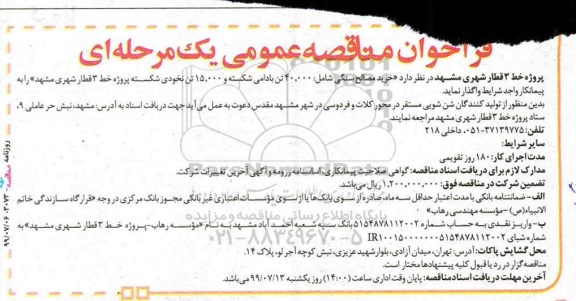 فراخوان مناقصه عمومی یک مرحله‌ای
پروژه خط ۳ قطار شهری مشهد در نظر دارد «خرید مصالح سنگی شامل: ۴۰,۰۰۰ تن بادامی شکسته و ۱۵,۰۰۰ تن نخودی شکسته پروژه خط ۳ قطار شهری مشهد» را به
پیمانکار واجد شرایط واگذار نماید.
بدین منظور از تولید کنندگان شن شویی مستقر در محور کلات و فردوسی در شهر مشهد مقدس دعوت به عمل می آید جهت دریافت اسناد به آدرس: مشهد، نبش حر عاملی ۹،
ستاد پروژه خط ۳ قطار شهری مشهد مراجعه نمایند.
تلفن: ۳۷۱۳۹۷۷۵-۰۵۱، داخلی ۲۱۸
سایر شرایط:
مدت اجرای کار: ۱۸۰ روز تقویمی
مدارک لازم برای دریافت اسناد مناقصه: گواهی صلاحیت پیمانکاری، اساسنامه رزومه و آگهی آخرین تغییرات شرکت.
تضمین شرکت در مناقصه فوق: ۱,۲۰۰,۰۰۰,۰۰۰ ریال می‌باشد.
الف - ضمانتنامه بانکی با مدت اعتبار حداقل سه ماه، صادره از سوی بانک‌ها یا از سوی مؤسسات اعتباری غیر بانکی مجوز بانک مرکزی در وجه «قرارگاه سازندگی خاتم
الانبیاء(ص) -مؤسسه مهندسی رهاب»
ب- واریز نقدی به حساب شماره ۵۱۵۴۸۷۸۱۱۲۰۰۲ بانک سپه شعبه احمد آباد مشهد به نام «مؤسسه رهاب-پروژه خط ۳ قطار شهری مشهد» به
شماره شبای
محل گشایش پاکات: آدرس: تهران، میدان آزادی، بلوار شهید عزیزی، نبش کوچه آجر لو، پلاک ۱۴.
مناقصه گزار در رد یا قبول کلیه پیشنهادها مختار است.
آخرین مهلت دریافت اسناد مناقصه: پایان وقت اداری ساعت (۱۴:۰۰) روز یکشنبه ۹۹/۰۷/۱۳ می‌باشد.
پایگاه اطلاع رسانی مناقصه و مزایده
۰۲۱-۸۸۳۴۹۶۷۰-۵
روزنامه
۹۹/۰۷/۰۶